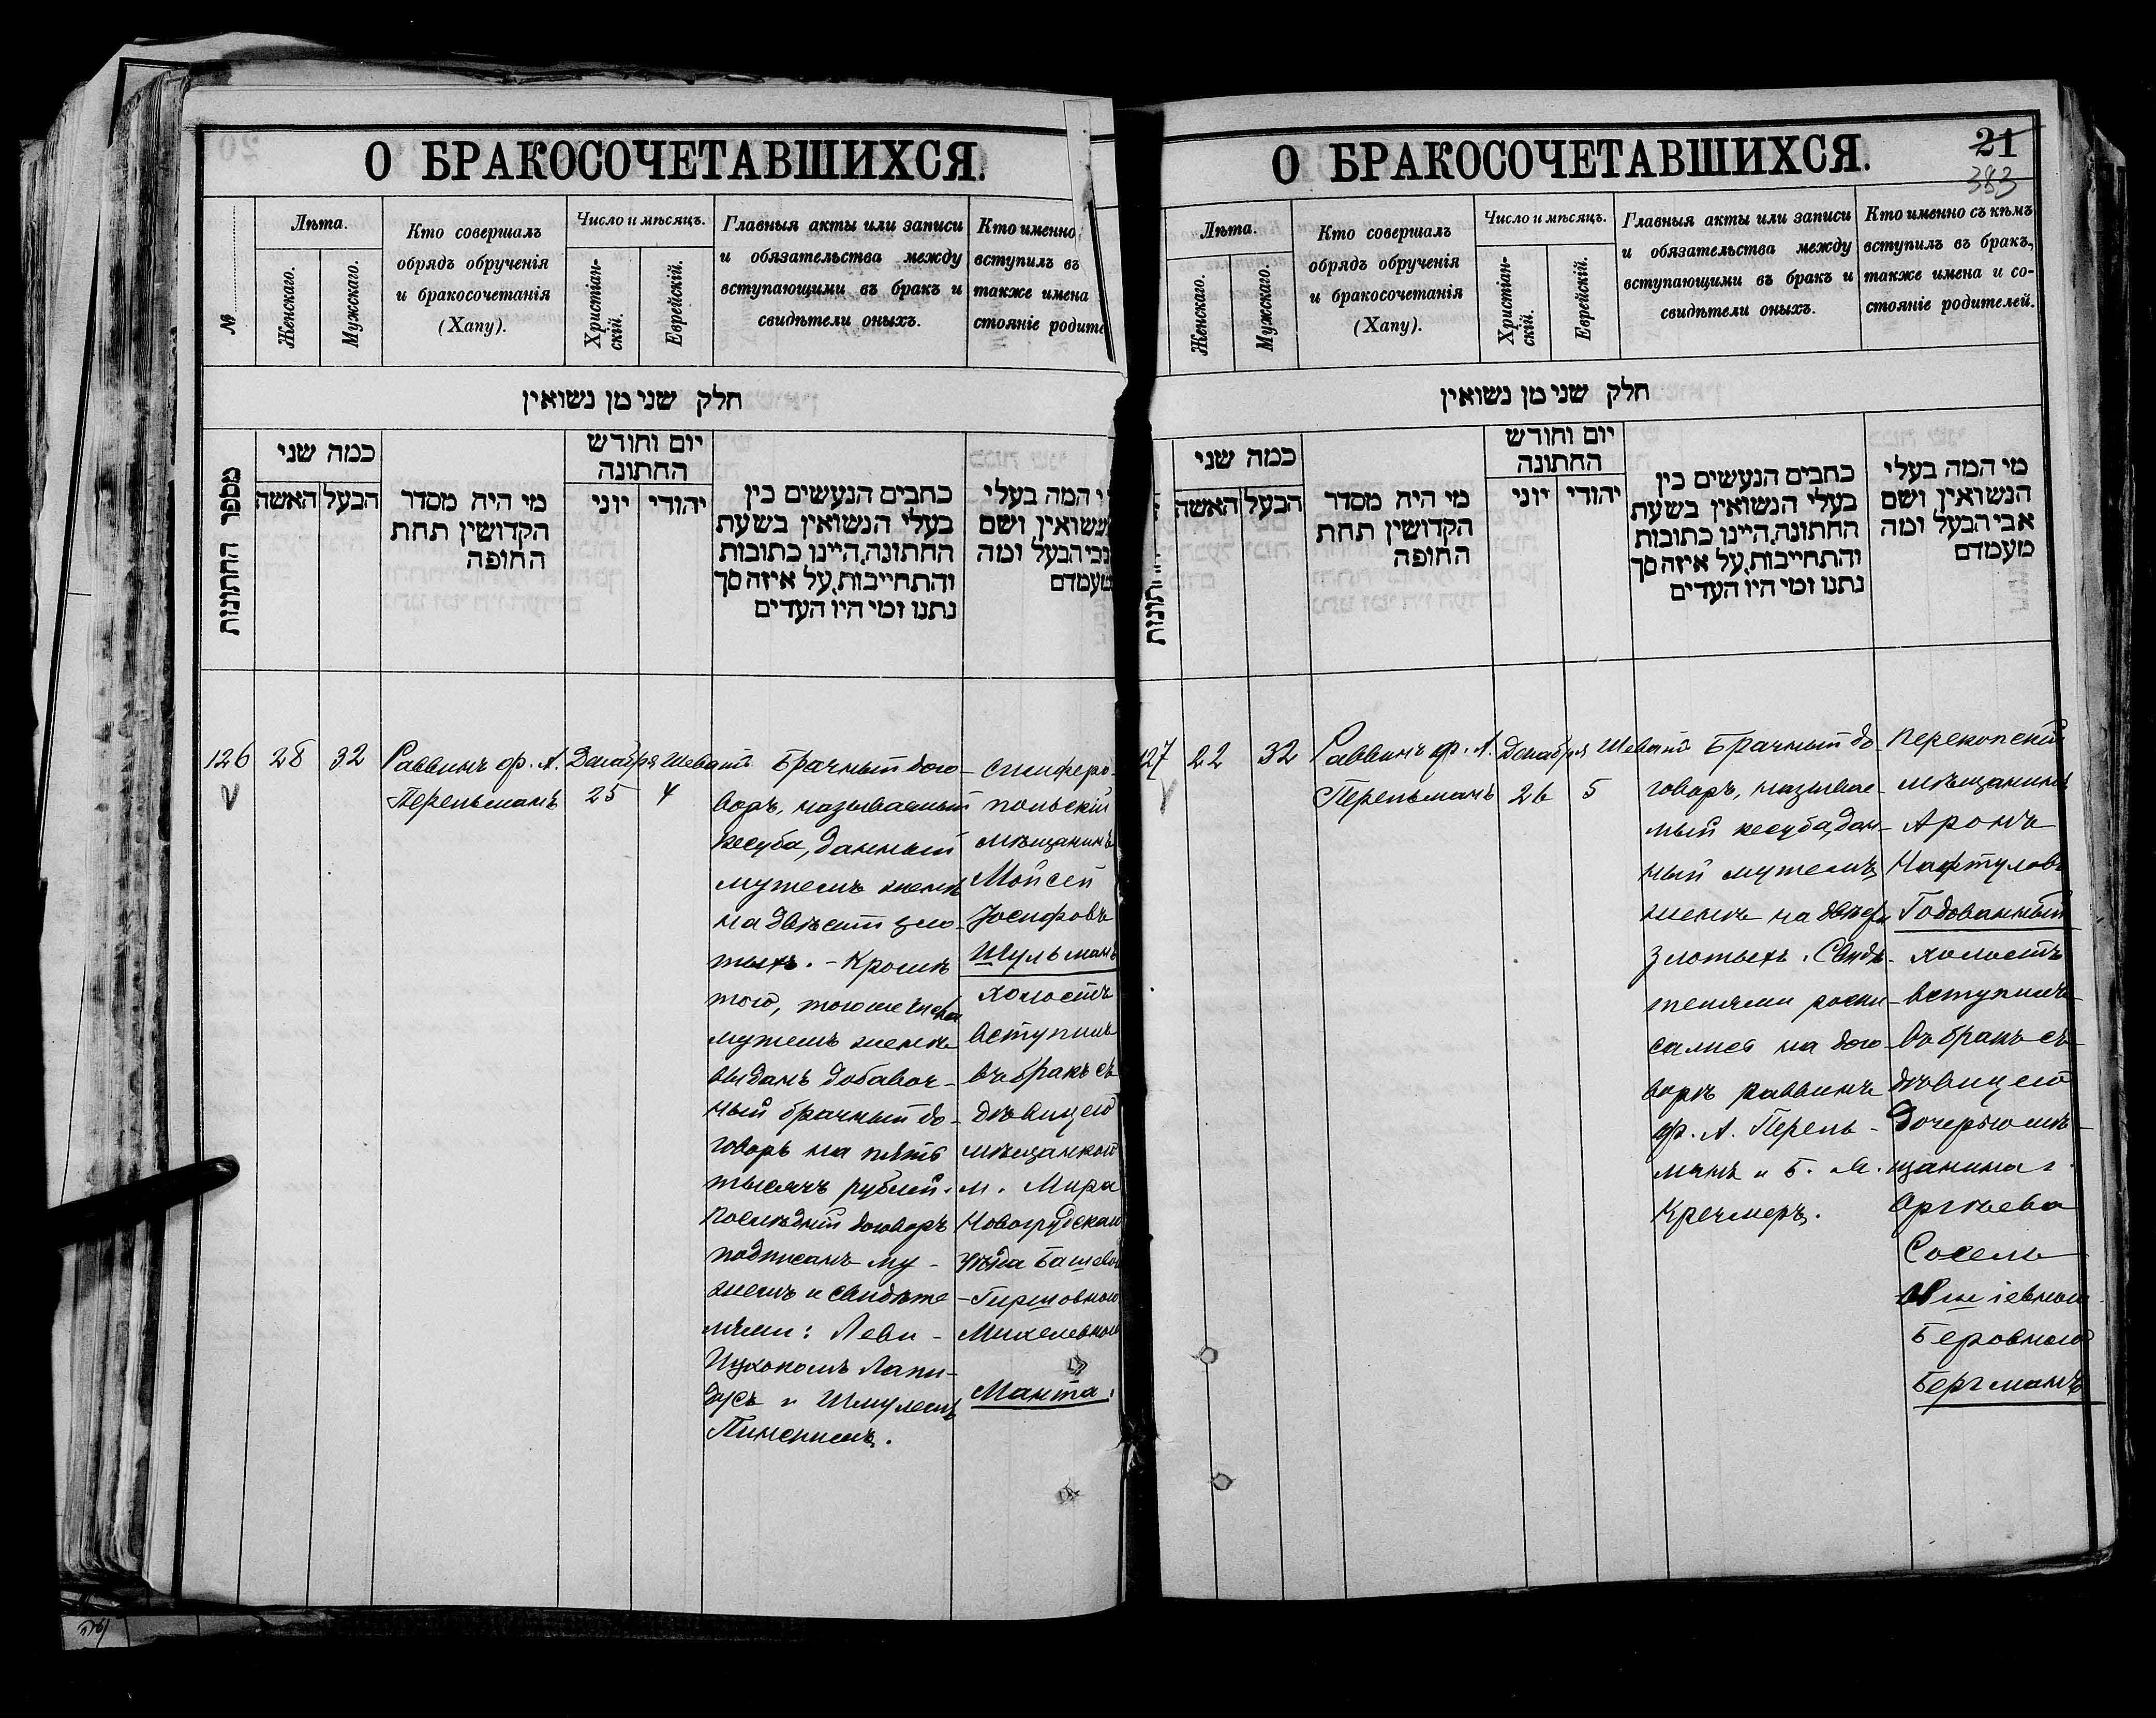 О БРАКОСОЧЕТАВШИХСЯ.
№
Лѣта.
Женскаго.
Мужскаго.
Кто совершалъ
обрядъ обрученія
и бракосочетанія
(Хапу).
Число и мѣсяцъ.
Христіан-
скій.
Еврейскій.
Главныя акты или записи
и обязательства между
вступающими въ бракъ и
свидѣтели оныхъ.
Кто именно
вступилъ въ
также имена
стояніе родите
חלק שני מן נשואין
מספר החתונות
כמה שני
האשה
הבעל
מי היה מסדר
הקדושין תחת
החופה
יום וחודש
החתונה
יוני
יהודי
כתבים הנעשים בין
בעלי הנשואין בשעת
החתונה, היינו כתובות
והתחייבות, על איזה סך
נתנו ומי היו העדים
י המה בעלי
נשואין ושם
אבי הבעל ומה
מעמדם
126
28
32
Раввинъ ф. А.
Перельманъ
Декабря
25
Шеватъ
4
Брачный дого-
воръ, называемый
кесуба, данный
мужемъ женѣ
на двѣсти зло-
тыхъ. - Кромѣ
того, тогоже числа
мужемъ женѣ
выданъ добавоч-
ный брачный до-
говоръ на пять
тысячъ рублей.
Послѣдній договоръ
подписанъ му-
жемъ и свидѣте
лями: Леви-
Ицхокомъ Лапи-
дусъ и Шмулемъ
Пинскимъ.
Симферо-
польскій
мѣщанинъ
Мойсей
Іосифовъ
Шульманъ
холостъ
вступилъ
въ бракъ съ
дѣвицею
мѣщанкой
м. Мира
Новогрудскаго
уѣзда Башевой
-Гиршовною
Михелевною
Манта.
О БРАКОСОЧЕТАВШИХСЯ.
21
383
Лѣта.
Женскаго.
Мужскаго.
Кто совершалъ
обрядъ обрученія
и бракосочетанія
(Хапу).
Число и мѣсяцъ.
Христіан-
скій.
Еврейскій.
Главныя акты или записи
и обязательства между
вступающими въ бракъ и
свидѣтели оныхъ.
Кто именно съ кѣмъ
вступилъ въ бракъ,
также имена и со-
стояніе родителей.
חלק שני מן נשואין
כמה שני
האשה
הבעל
מי היה מסדר
הקדושין תחת
החופה
יום וחודש
החתונה
יוני
יהודי
כתבים הנעשים בין
בעלי הנשואין בשעת
החתונה, היינו כתובות
והתחייבות, על איזה סך
נתנו ומי היו העדים
מי המה בעלי
הנשואין ושם
אבי הבעל ומה
מעמדם
127
22
32
Раввинъ ф. А.
Перельманъ
Декабря
26
Шеватъ
5
Брачный до-
говоръ, называе-
мый кесуба, дан-
ный мужемъ
женѣ на двѣсти
злотыхъ. Свидѣ-
телями распи-
сались на дого-
ворѣ раввинъ
ф. А. Перель-
манъ и Б. М.
Кремеръ.
Перекопскій
мѣщанинъ
Аронъ
Нафтуловъ
Годованный
холостъ
вступилъ
въ бракъ съ
дѣвицею
дочерью мѣ-
щанина г.
Оргѣева
Сосель
Беровною
Бергманъ